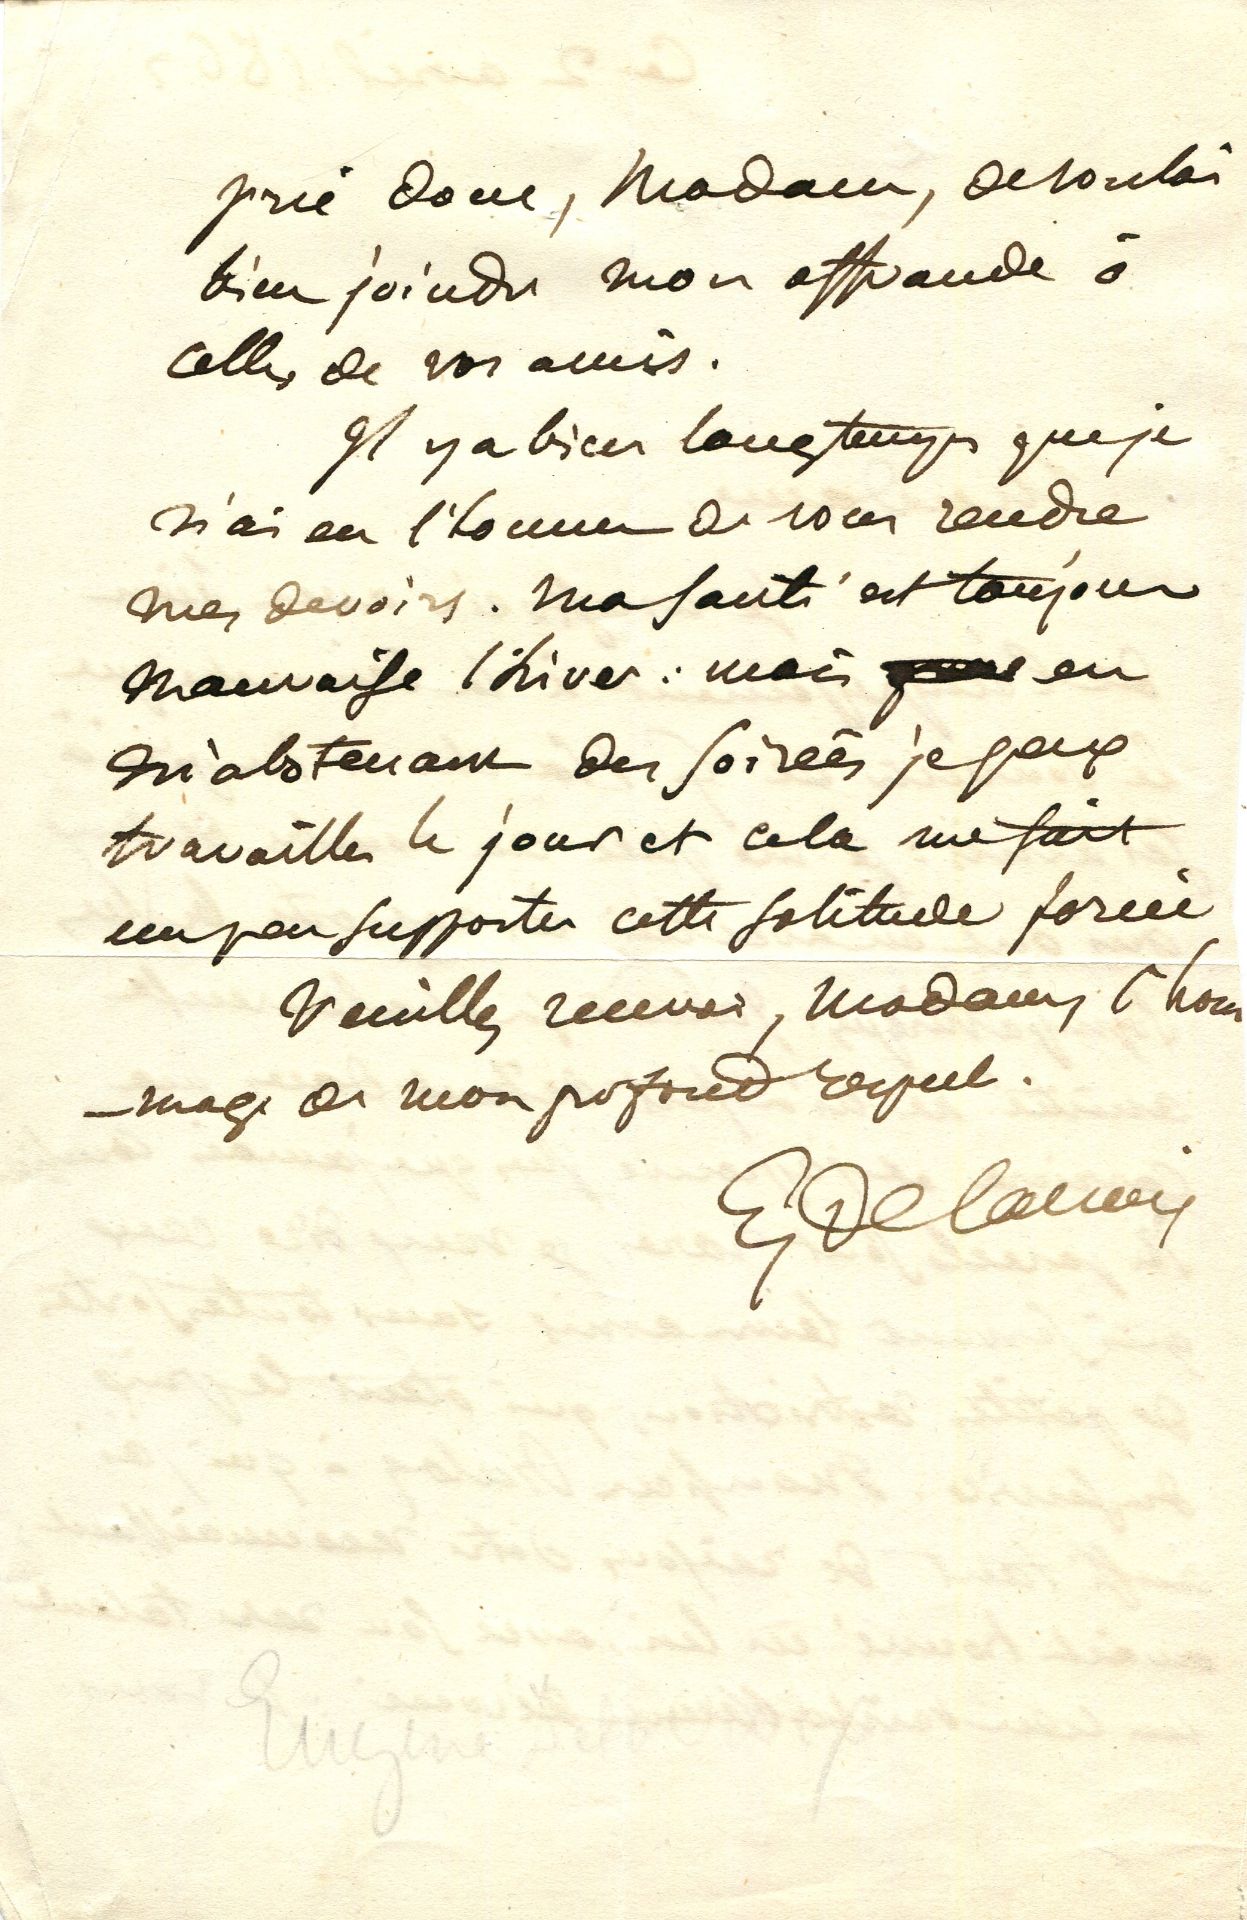 prie donc, Madame, de vouloir
bien joindre mon offrande à
celles de vos amis.
Il y a bien longtemps que je
n'ai eu l'honneur de vous rendre
mes devoirs. Ma santé est toujours
mauvaise l'hiver : mais en
m'abstenant des soirées je peux
travailler le jour et cela me fait
un peu supporter cette solitude forcée
Veuillez recevoir, Madame, l'hom
-mage de mon profond respect.
Eg Delacroix
Eugène